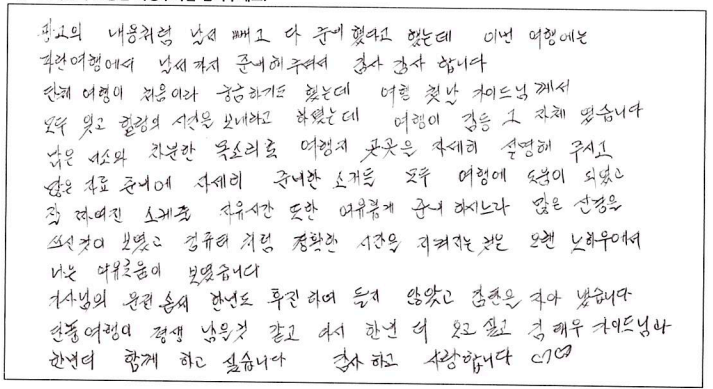 광고의 내용처럼 날씨 빼고 다 준비 했다고 했는데 이번 여행에는
파란여행에서 날씨까지 준비해주셔서 감사 감사 합니다
단체 여행이 처음이라 궁금하기도 했는데 여행 첫날 가이드님 께서
모두 잊고 힐링의 시간을 보내라고 하셨는데 여행이 힐링 그 자체 였습니다
낮은 미소와 차분한 목소리로 여행지 곳곳을 자세히 설명해 주시고
많은 자료 준비에 자세히 준비한 소개들 모두 여행에 도움이 되었고
잘 짜여진 스케줄 자유시간 또한 여유롭게 준비 하시느라 많은 신경을
쓰신것이 보였고 컴퓨터 처럼 정확한 시간을 지켜지는 것은 오랜 노하우에서
나는 여유로움이 보였습니다
기사님의 운전 솜씨 한번도 후진 하며 들지 않았고 감탄을 자아 냈습니다
단풍여행이 평생 남을것 같고 다시 한번 더 오고 싶고 김태우 가이드님과
한번더 함께 하고 싶습니다 감사하고 사랑합니다